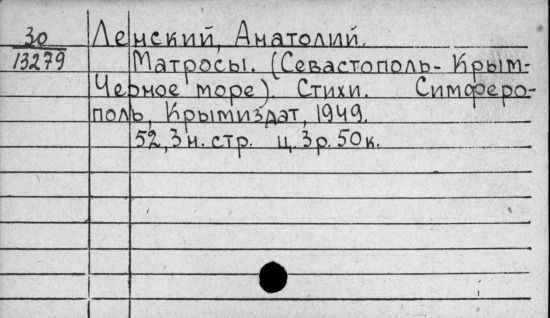 30
13279
Ленский, Анатолий.
Матросы. (Севастополь - Крым-
Черное море). Стихи. Симферо-
поль, Крымиздат, 1949.
52, 3 н. стр. ц. 3 р. 50 к.